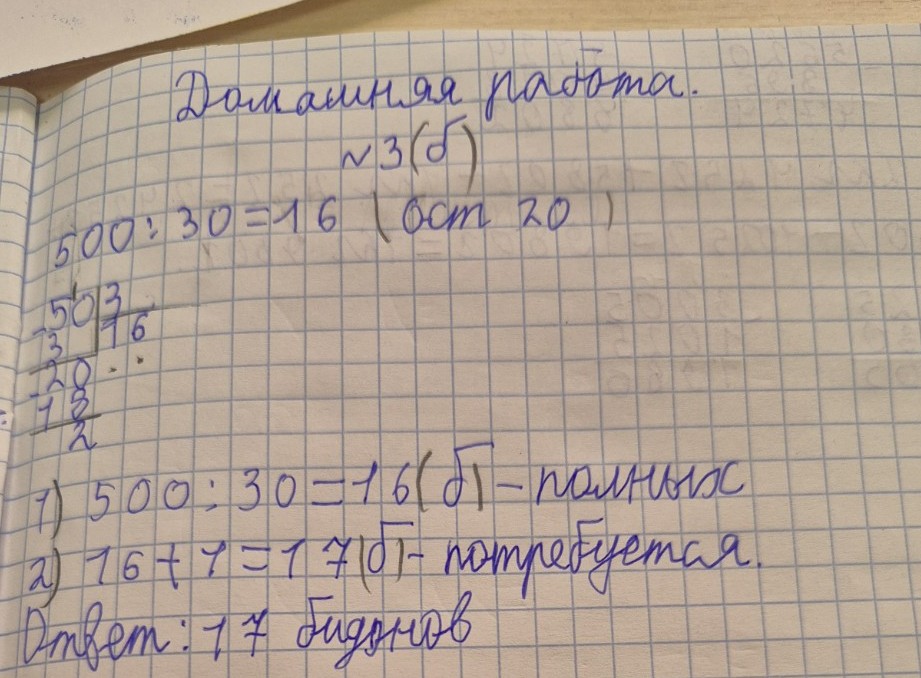 Домашняя работа.
~ 3 (б)
500 : 30 = 16 (ост 20)
50 3
3 16
20
18
2
1) 500 : 30 = 16 (б) - полных
2) 16 + 1 = 17 (б) - потребуется.
Ответ: 17 бидонов